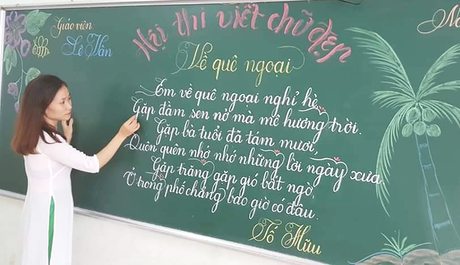 Hội thi viết chữ đẹp
Giáo viên
Lê Vân
Về quê ngoại
Em về quê ngoại nghỉ hè,
Gặp đầm sen nở mà mê hương trời.
Gặp bà tuổi đã tám mươi,
Quên quên nhớ nhớ những lời ngày xưa
Gặp trăng gặp gió bất ngờ,
Ở trong phố chẳng bao giờ có đâu.
Tố Hữu